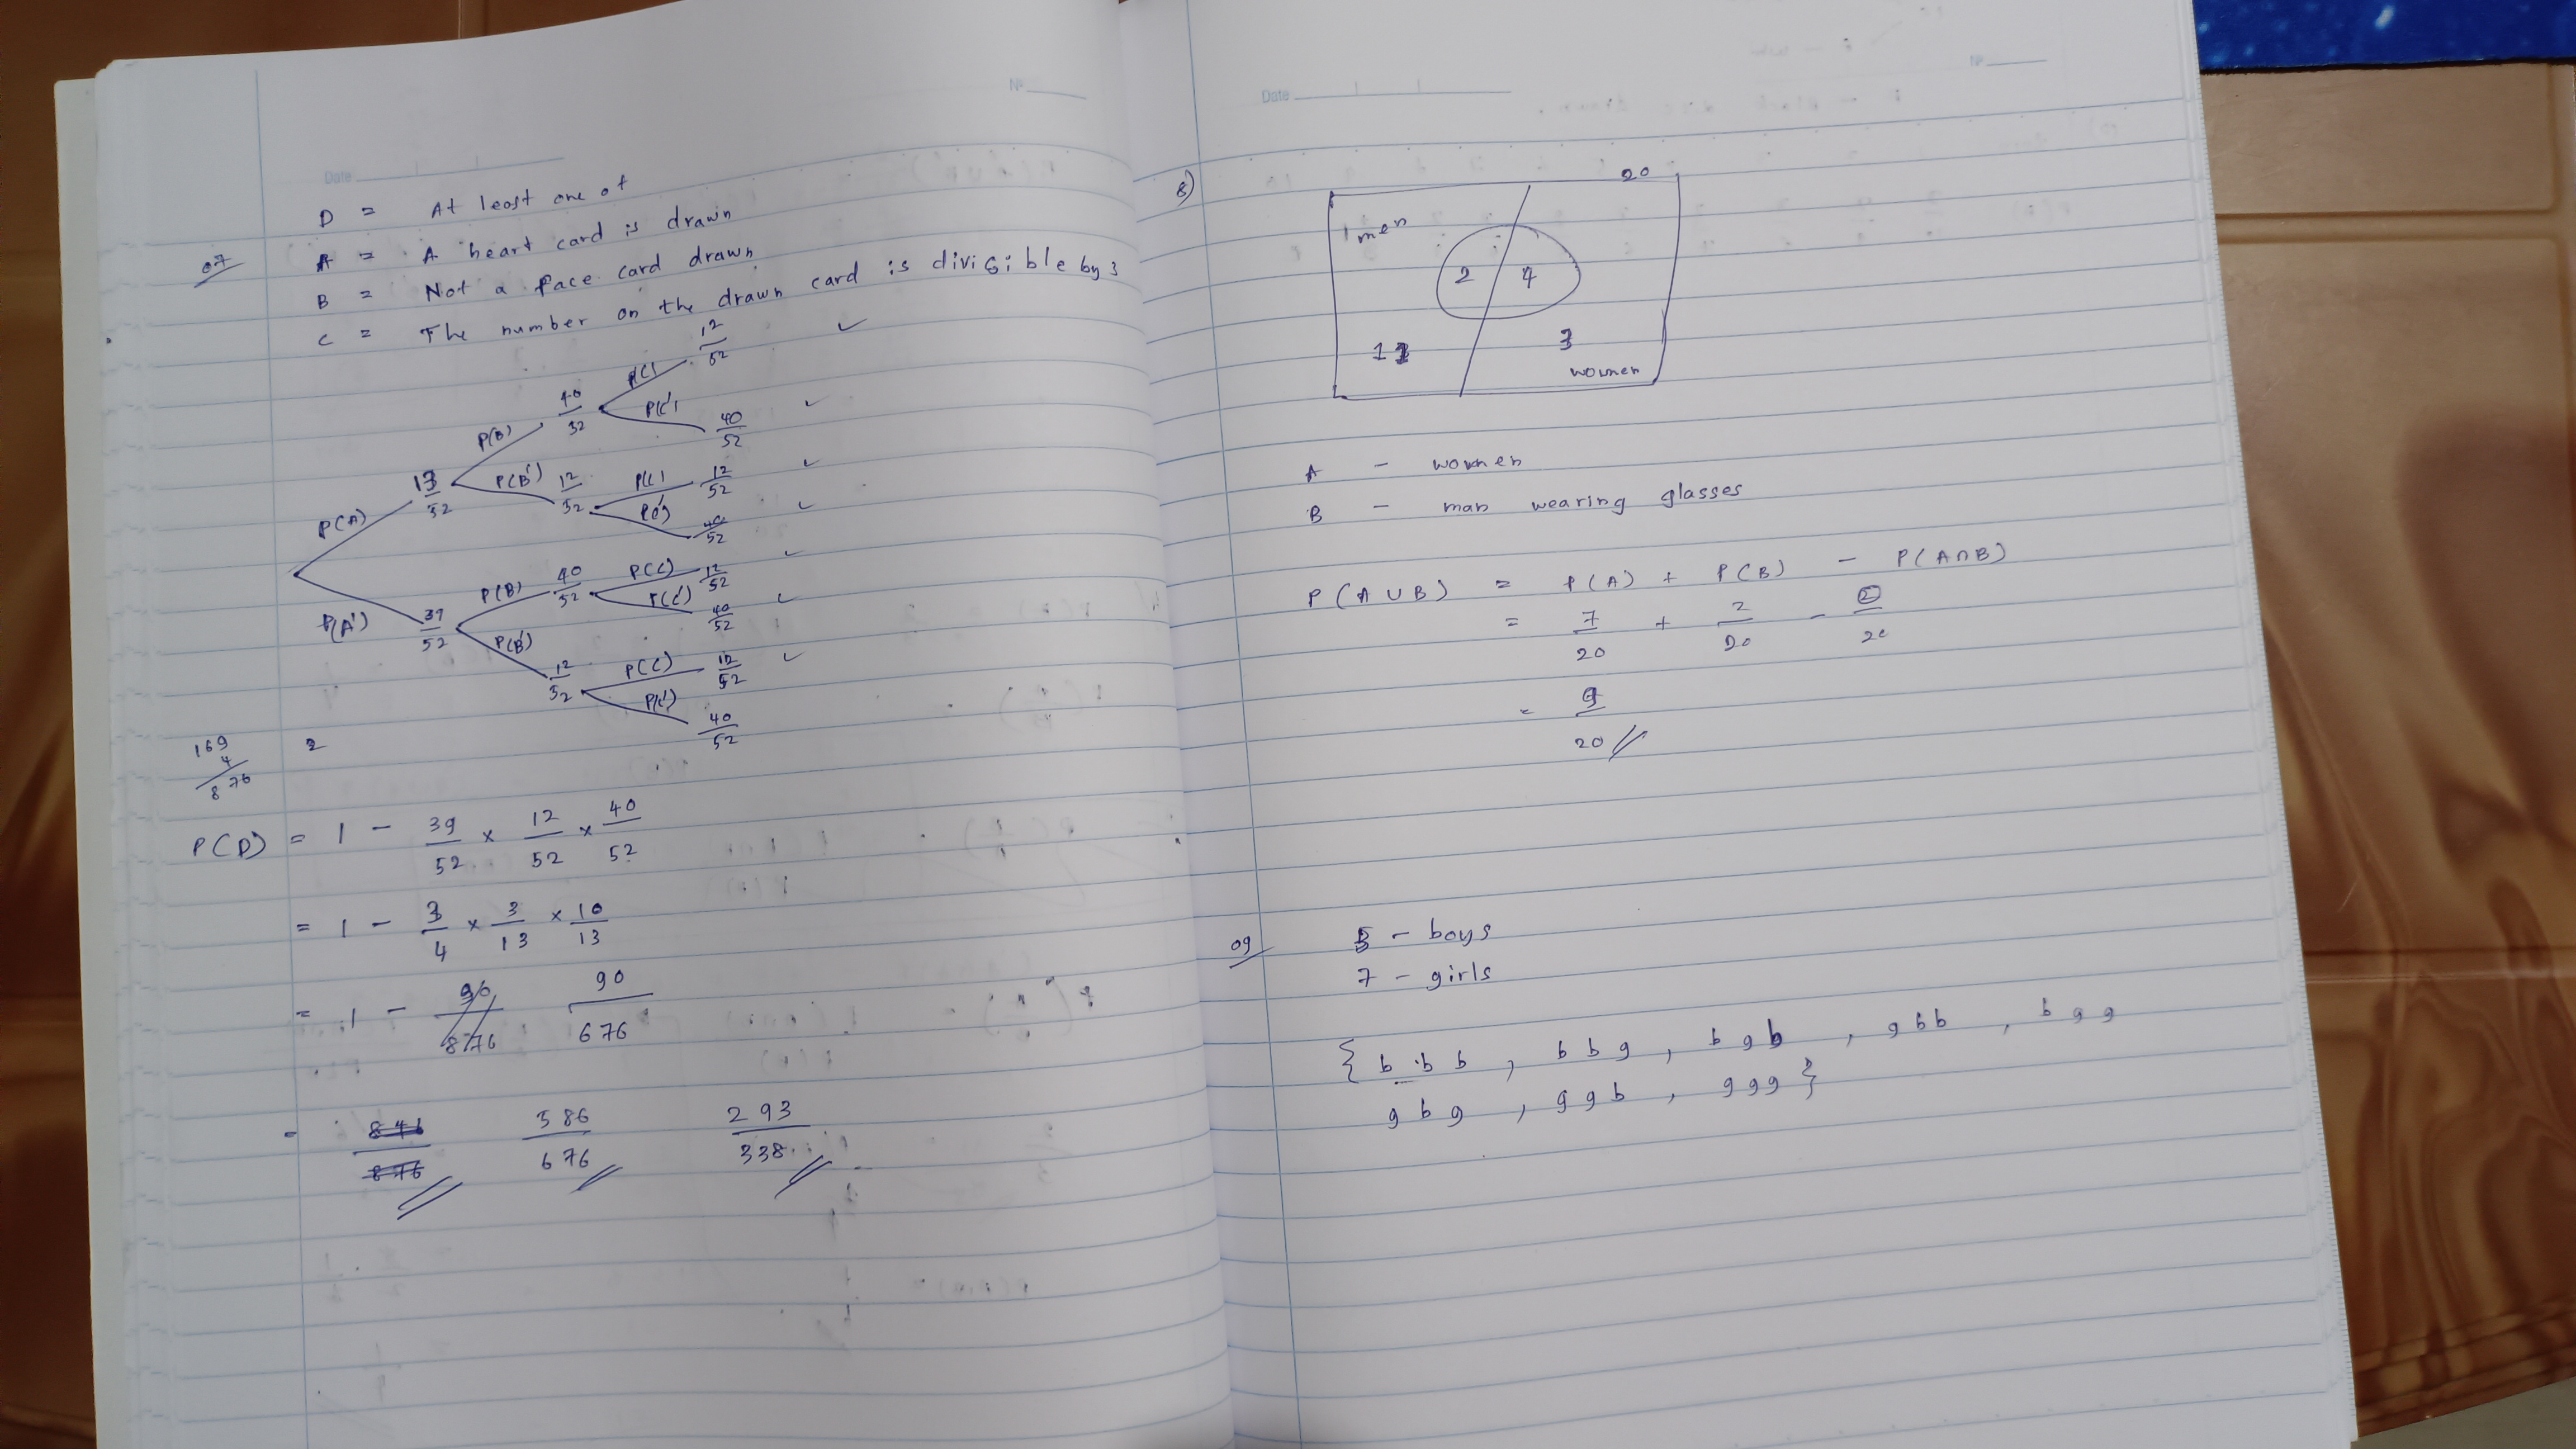 Date
Nº
D = At least one of
07
A = A heart card is drawn
B = Not a face card drawn
C = The number on the drawn card is divisible by 3
P(C) 12/52 ✓
P(B) 40/52
P(C') 40/52 ✓
P(A) 13/52
P(B') 12/52
P(C) 12/52 ✓
P(C') 40/52 ✓
P(A') 39/52
P(B) 40/52
P(C) 12/52 ✓
P(C') 40/52 ✓
P(B') 12/52
P(C) 12/52 ✓
P(C') 40/52
169
4
876
2
P(D) = 1 - 39/52 × 12/52 × 40/52
= 1 - 3/4 × 3/13 × 10/13
= 1 - 90/876 90/676
= 846/876 586/676 293/338
Date
Nº
8)
20
men
2 4
3
women
A - women
B - man wearing glasses
P(A∪B) = P(A) + P(B) - P(A∩B)
= 7/20 + 2/20 - 0/20
= 9/20
09
5 - boys
7 - girls
{ b b b , b b g , b g b , g b b , b g g
g b g , g g b , g g g }